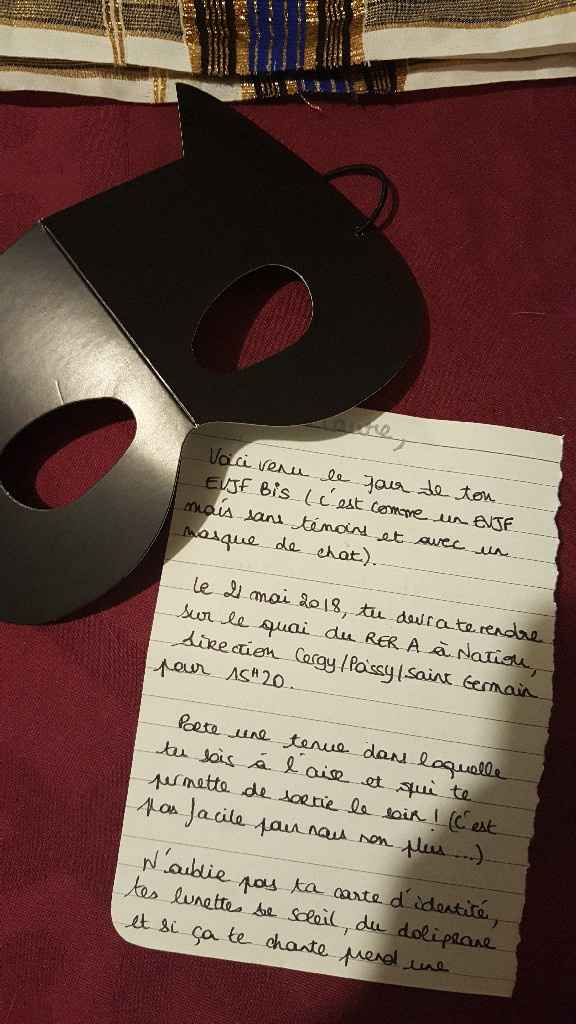 Voici venu le jour de ton
EVJF Bis (c'est comme un EVJF
mais sans témoins et avec un
masque de chat).
Le 21 mai 2018, tu devra te rendre
sur le quai du RER A à Nation,
direction Cergy/Poissy/Saint Germain
pour 15H20.
Porte une tenue dans laquelle
tu sois à l'aise et qui te
permette de sortir le soir ! (C'est
pas facile pour nous non plus...)
N'oublie pas ta carte d'identité,
tes lunettes de soleil, du doliprane
et si ça te chante prend une